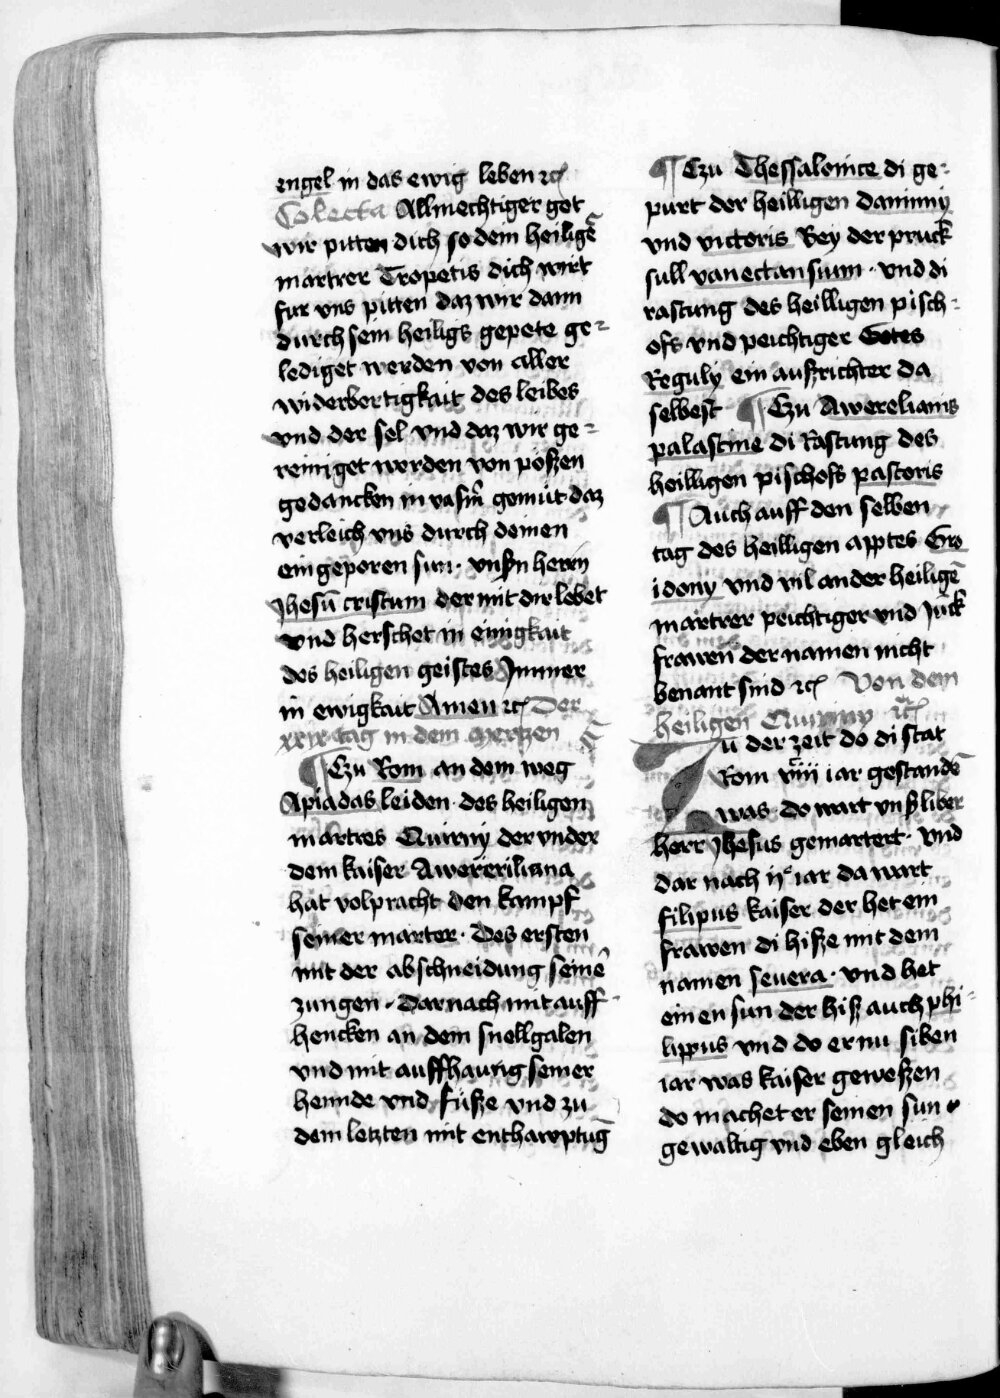 engel in das ewig leben ⁊c̄
Colecta Allmechtiger got
wir pitten dich so dem heiligē
martrer Tropetis dich wirt
fur vns pitten daz wir dann
durch sein heiligs gepete ge⸗
lediget werden von aller
widerbertigkait des leibes
vnd der sel vnd daz wir ge⸗
reiniget werden von pößen
gedancken in vnsm̄ gemüt daz
verleich vns durch deinen
eingeporen sun · vnsn̄ herrn
Jhesū cristum der mit dir lebet
vnd herschet in einigkait
des heiligen geistes Immer
in ewigkait Amen ⁊c̄ Der
xxix tag in dem mertzen
¶ Czu Rom an dem weg
Apia das leiden · des heiligen
martres Quiriny der vnder
dem kaiser Awereriliana
hat volpracht den kampf
seiner marter · Des ersten
mit der abschneidung seinē
zungen · Darnach mit auff⸗
hencken an dem snellgalen
vnd mit auffhaung seiner
hennde vnd füße vnd zu
dem letzten mit enthawptūg
¶ Czu Thessalonice di ge⸗
purt der heilligen daninny
vnd victoris Bey der pruck
sull vanectansium · vnd di
rastung des heilligen pisch⸗
ofs vnd peichtiger Gotes
Reguly ein außrichter da
selbest ¶ Czu Awerelianis
palastine di Rastung des
heilligen pischofs pastoris
¶ Auch auff den selben
tag des heilligen apptes Gro
idony vnd vil ander heiligē
martrer peichtiger vnd Jūck
frawen der namen nicht
benant sind ⁊c̄ Von dem
heiligen Quiriny ⁊c̄
Zu der zeit do di stat
Rom viii iar gestandē
was · do wart vnß liber
herr Jhesus gemartert · vnd
dar nach ijc iar da wart
filipus kaiser der het ein
frawen di hiße mit dem
namen severa · vnd het
einen sun der hiß auch phi⸗
lippus vnd do er nu siben
iar was kaiser geweßen
do machet er seinen sun
gewaltig vnd eben gleich